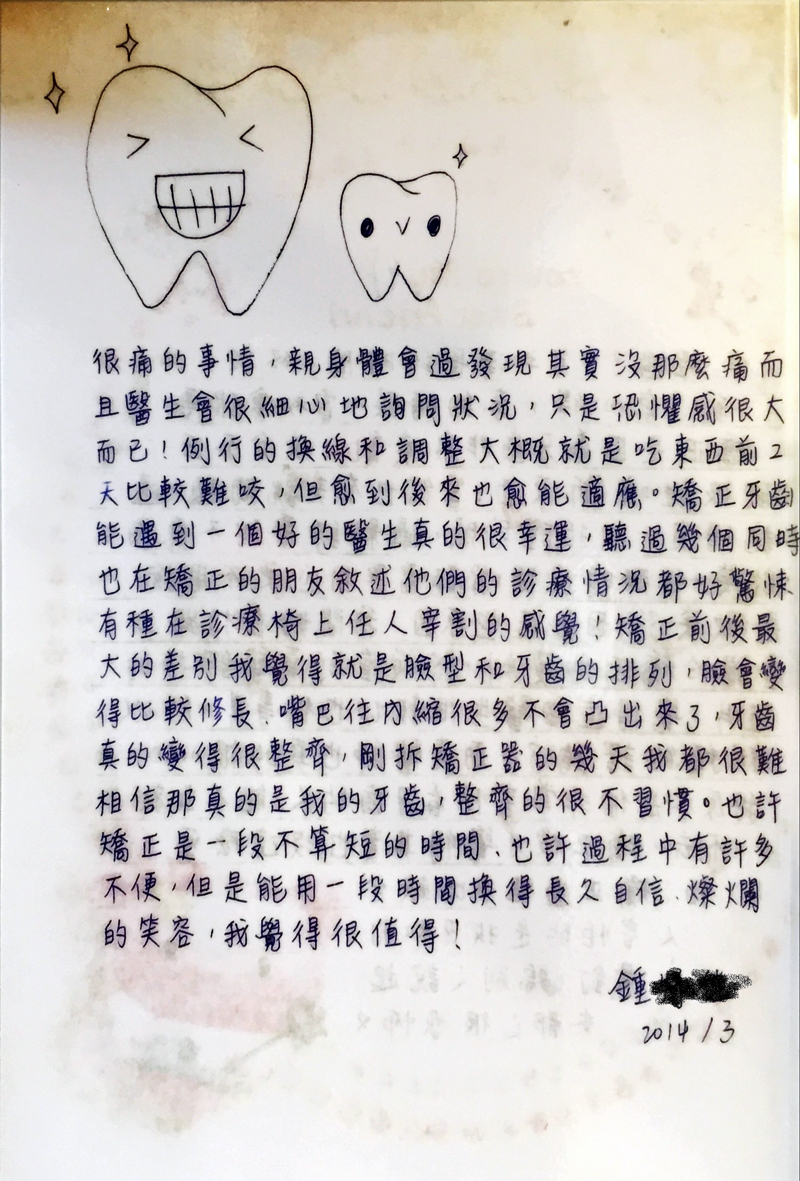 很痛的事情，親身體會過發現其實沒那麼痛而
且醫生會很細心地詢問狀況，只是恐懼感很大
而已！例行的換線和調整大概就是吃東西前2
天比較難咬，但愈到後來也愈能適應。矯正牙齒
能遇到一個好的醫生真的很幸運，聽過幾個同時
也在矯正的朋友敘述他們的診療情況都好驚悚
有種在診療椅上任人宰割的感覺！矯正前後最
大的差別我覺得就是臉型和牙齒的排列，臉會變
得比較修長、嘴巴往內縮很多不會凸出來了，牙齒
真的變得很整齊，剛拆矯正器的幾天我都很難
相信那真的是我的牙齒，整齊的很不習慣。也許
矯正是一段不算短的時間、也許過程中有許多
不便，但是能用一段時間換得長久自信、燦爛
的笑容，我覺得很值得！
鍾
2014/3